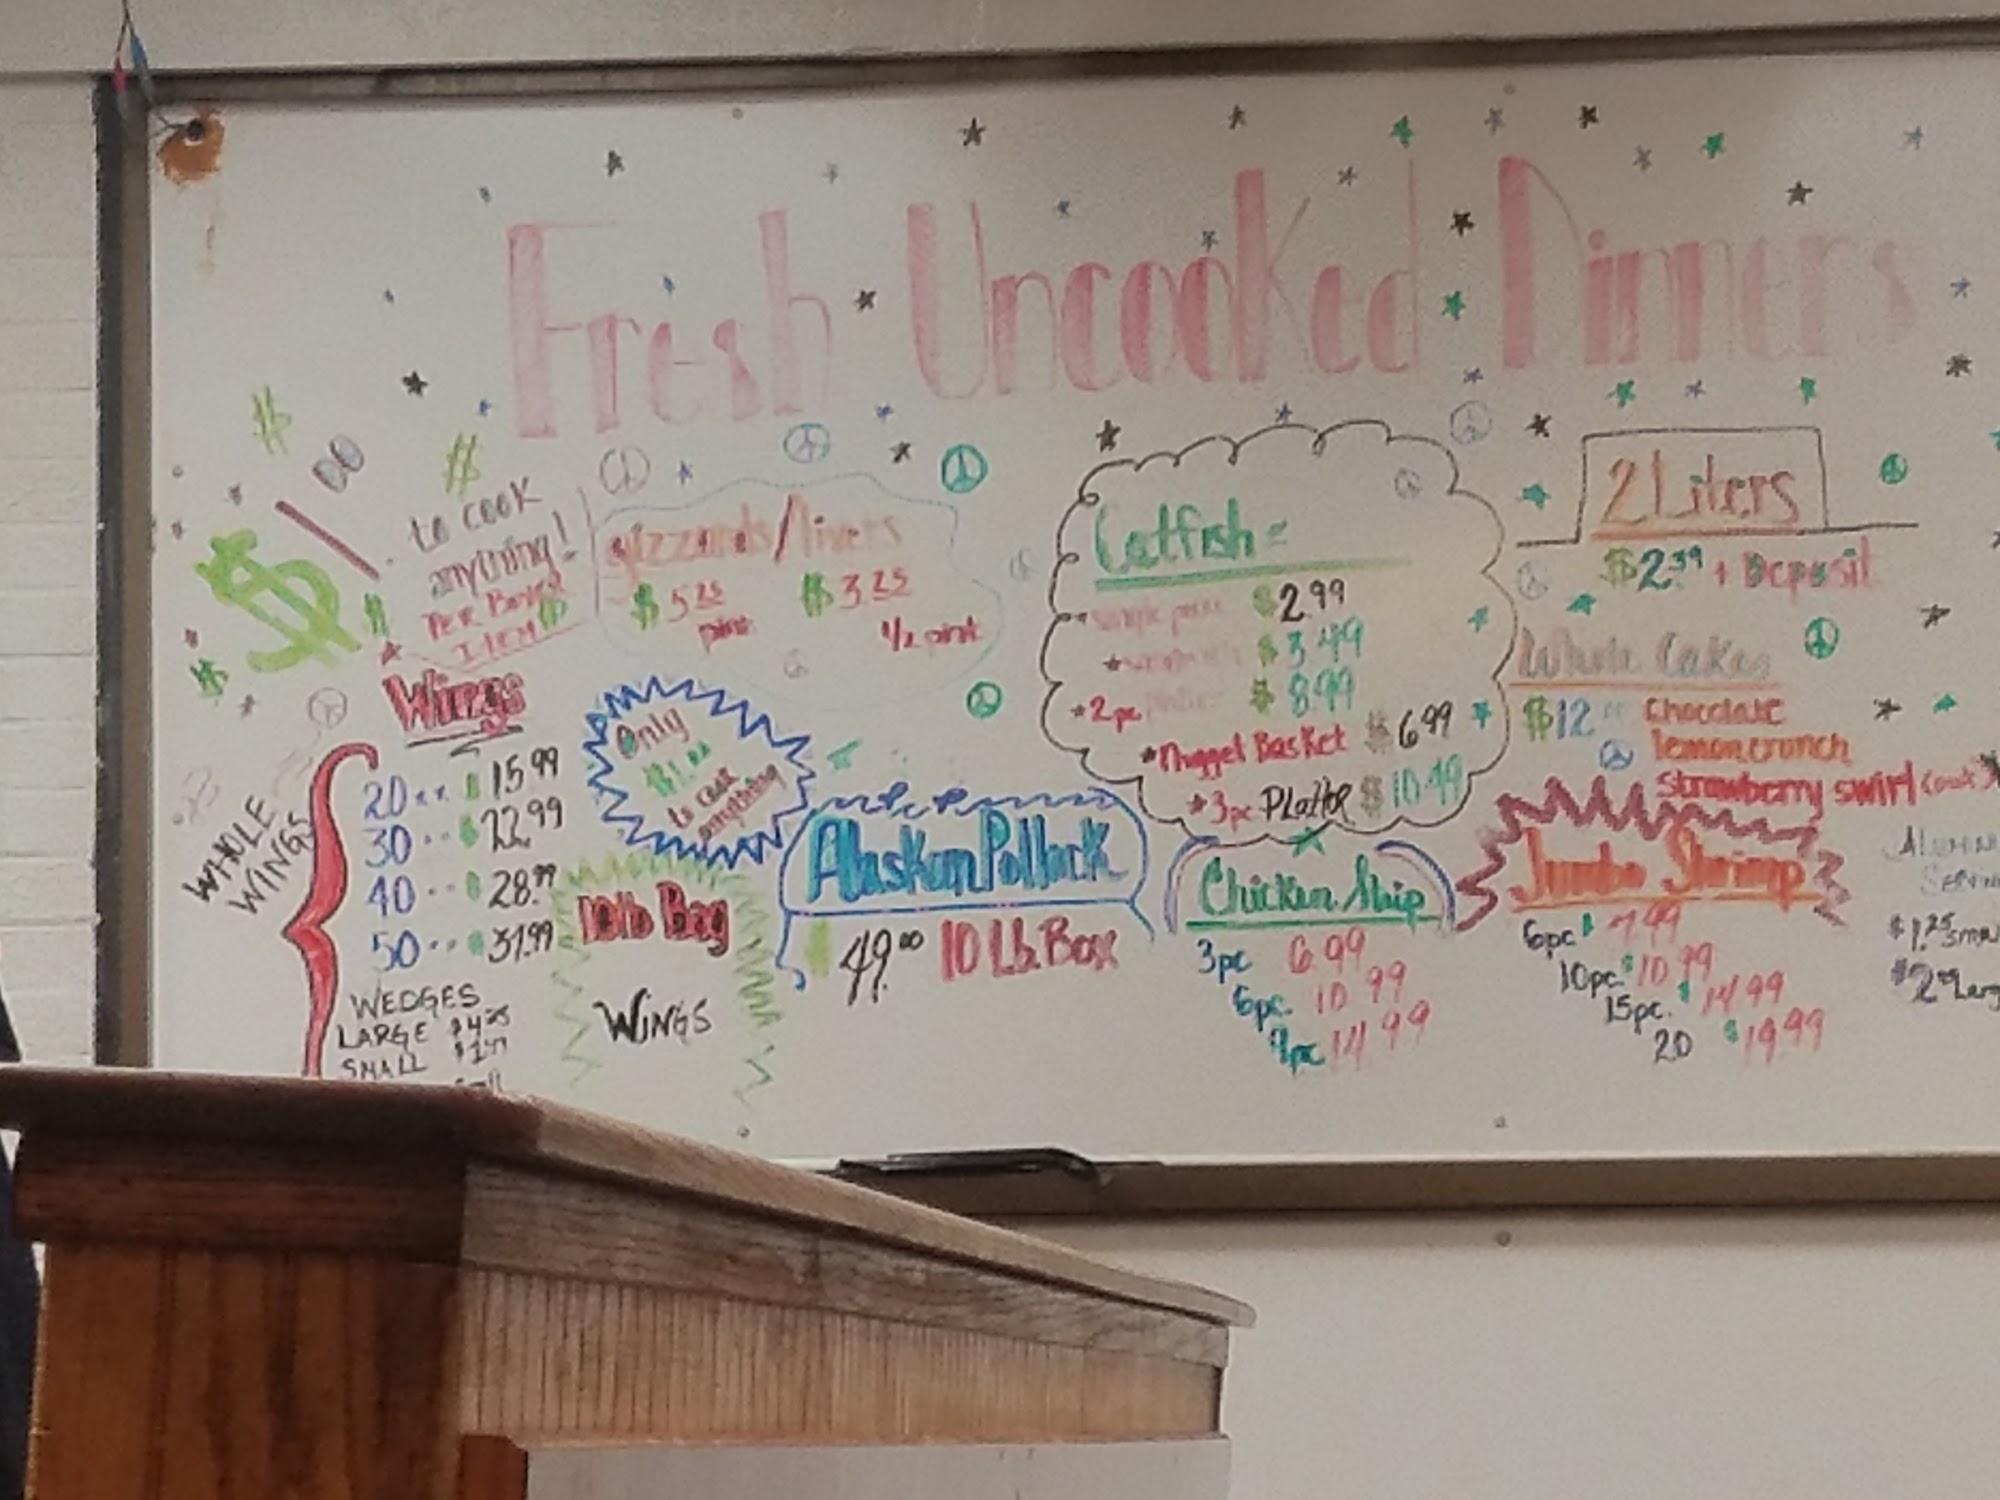 Fresh Uncooked Dinners
$1.00
to cook
anything!
PER BOXED
ITEM
gizzards/livers
$5.25 $3.25
pint 1/2 pint
Catfish =
$2.99
$3.49
2pc $8.99
Nugget Basket $6.99
3pc Platter $10.49
2 Liters
$2.39 + Deposit
Whole Cakes
$12 Chocolate
lemon crunch
strawberry swirl
Wings
WHOLE
WINGS
20 .. $15.99
30 .. $22.99
40 .. $28.99
50 .. $37.99
WEDGES
LARGE
SMALL
Only
$1.00
to cook
anything
10lb Bag
WINGS
Alaskan Pollock
$49.00 10 Lb. Box
Chicken Strip
3pc 6.99
6pc. 10.99
9pc 14.99
Jumbo Shrimp
6pc $7.99
10pc. $10.99
15pc. $14.99
20 $19.99
$1.25
$2